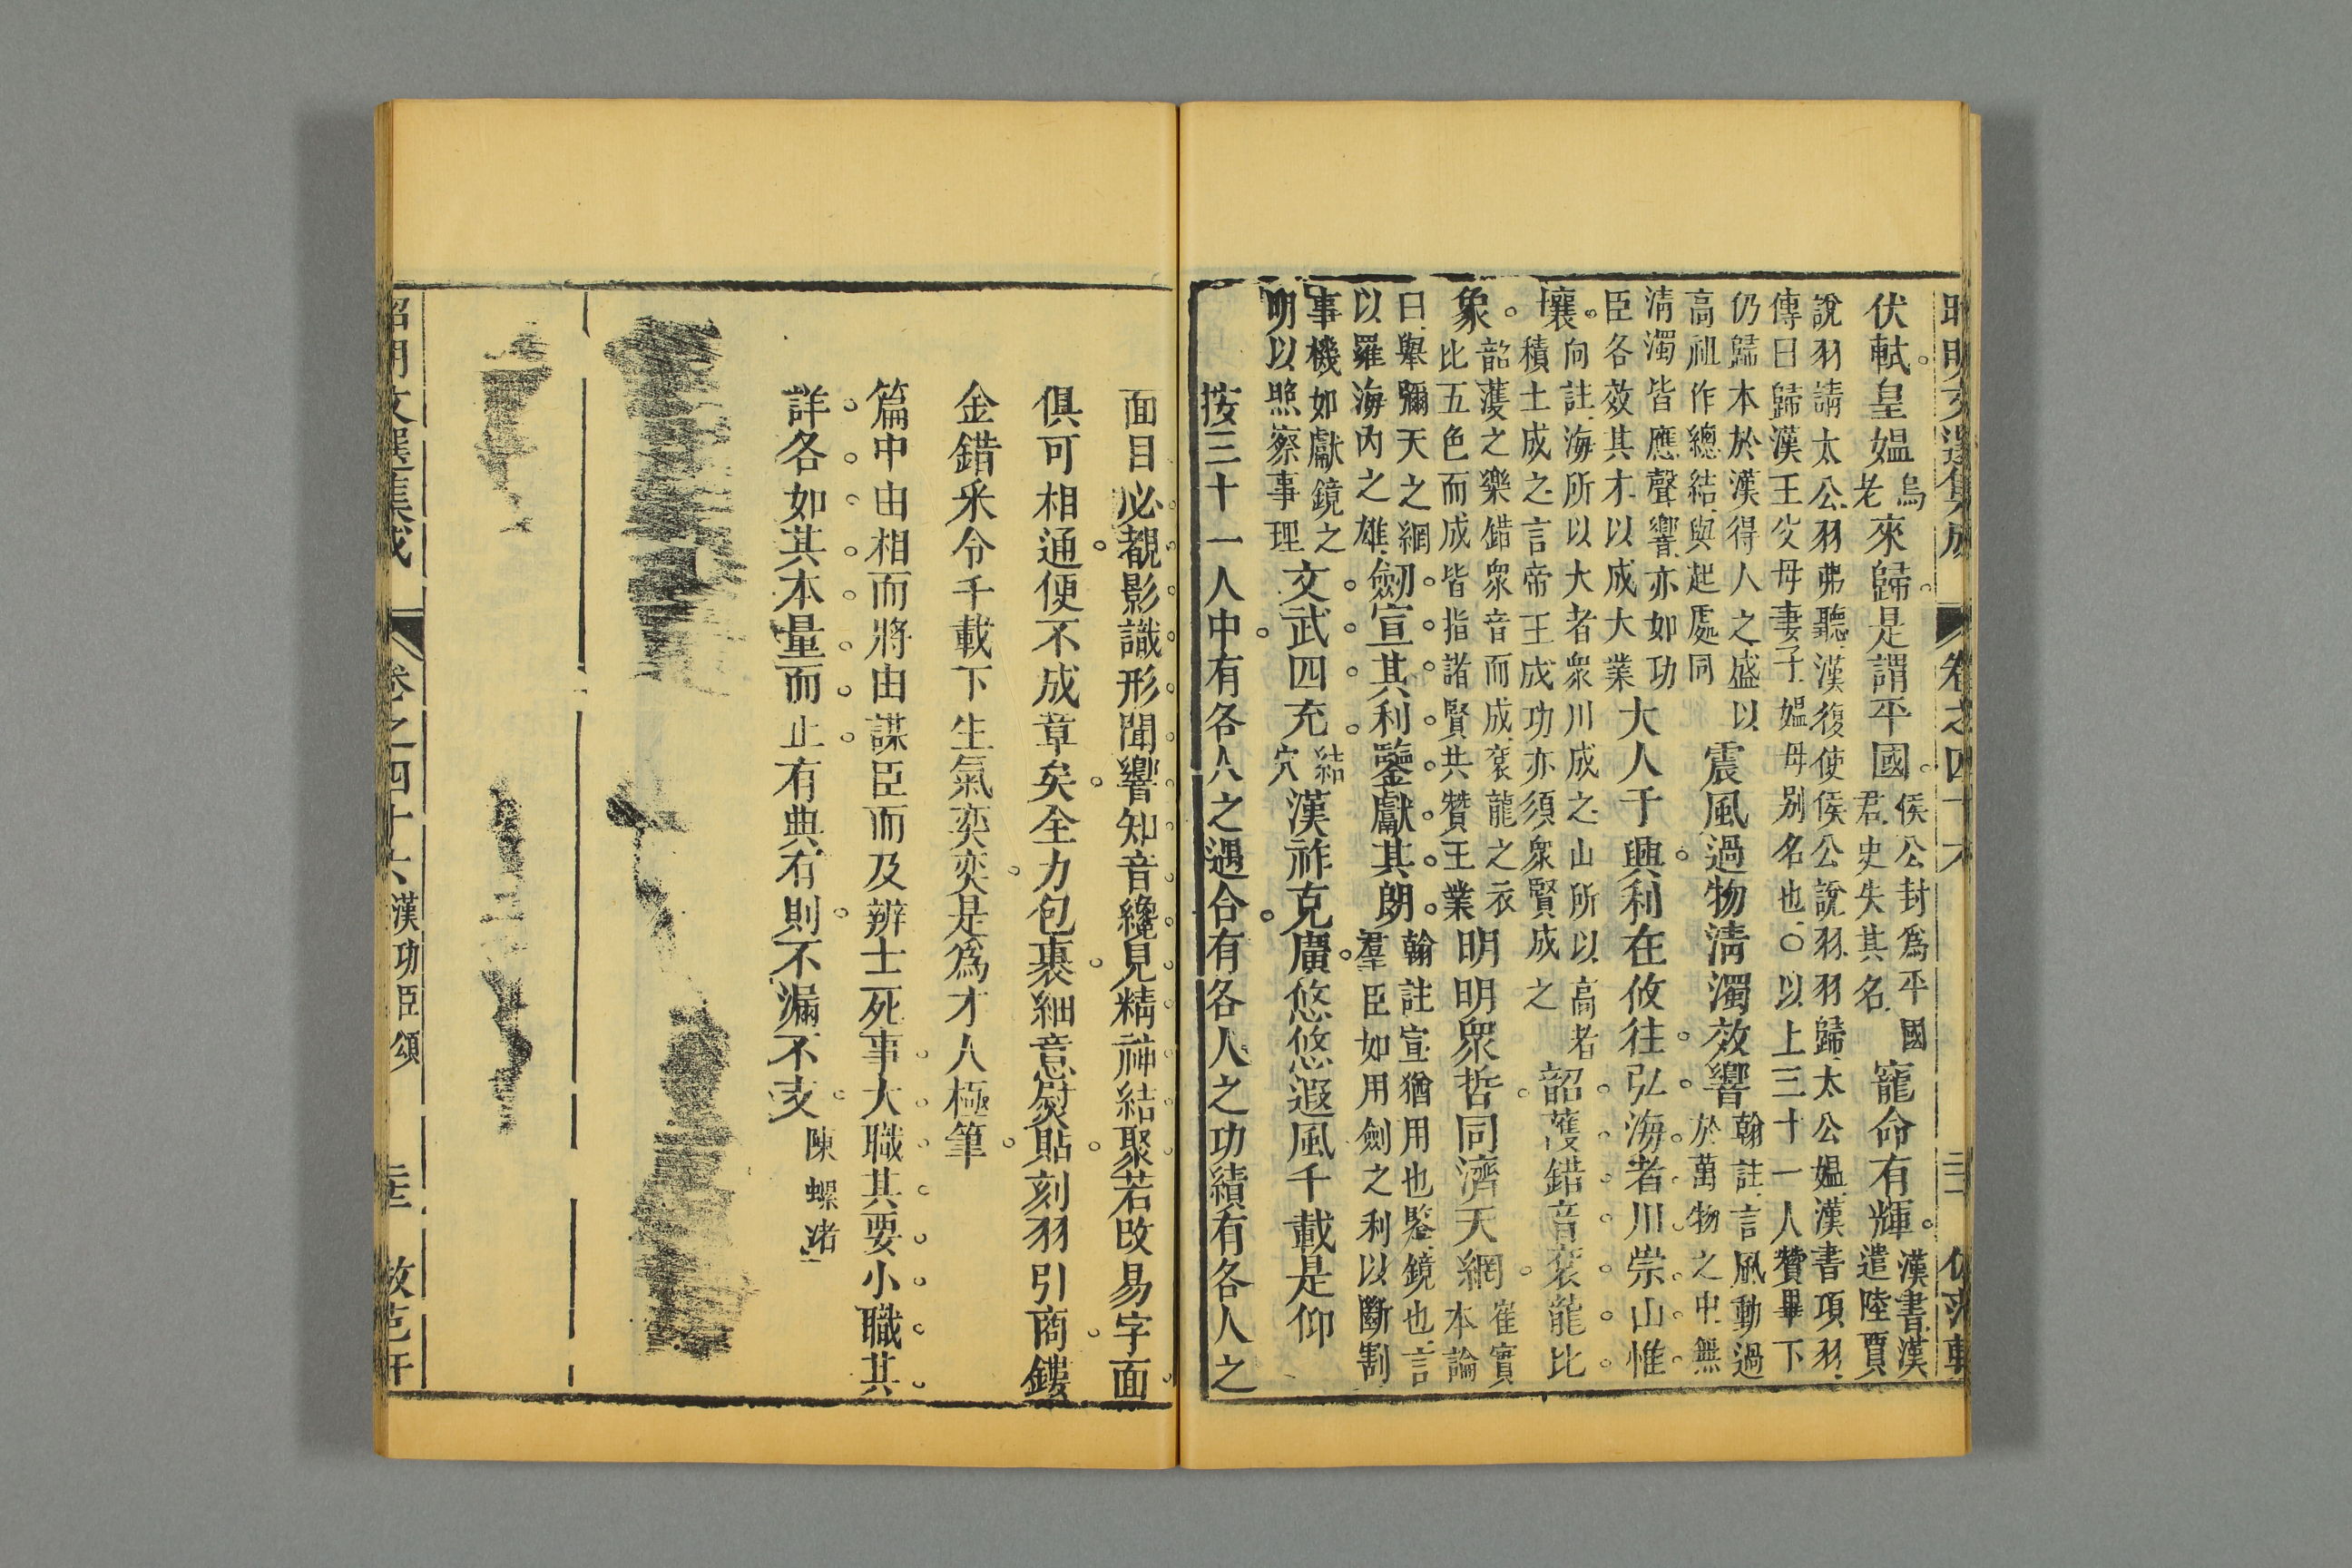 昭明文選集成 卷之四十六
伏軾皇媼烏老來歸是謂平國侯公封爲平國君史失其名寵命有輝漢書漢遣陸賈
說羽請太公羽弗聽漢復使侯公說羽羽歸太公媼漢書項羽
傳曰歸漢王父母妻子媼母別名也○以上三十一人贊畢下
仍歸本於漢得人之盛以高祖作總結與起處同震風過物清濁效響翰註言風動過於萬物之中無
清濁皆應聲響亦如功臣各效其才以成大業大人于興利在攸往弘海者川崇山惟
壤向註海所以大者衆川成之山所以高者積土成之言帝王成功亦須衆賢成之韶頀錯音袞龍比
象韶頀之樂錯衆音而成袞龍之衣比五色而成皆指諸賢共贊王業明明衆哲同濟天網崔寔本論
曰舉彌天之網以羅海內之雄劒宣其利鑒獻其朗翰註宣猶用也鑒鏡也言羣臣如用劍之利以斷割
事機如獻鏡之明以照察事理文武四充結穴漢祚克廣悠悠遐風千載是仰
按三十一人中有各人之遇合有各人之功績有各人之
面目必覩影識形聞響知音纔見精神結聚若改易字面
俱可相通便不成章矣全力包裹細意熨貼刻羽引商鏤
金錯采令千載下生氣奕奕是爲才人極筆
篇中由相而將由謀臣而及辨士死事大職其要小職其
詳各如其本量而止有典有則不漏不支陳螺渚
昭明文選集成 卷之四十六 漢功臣頌